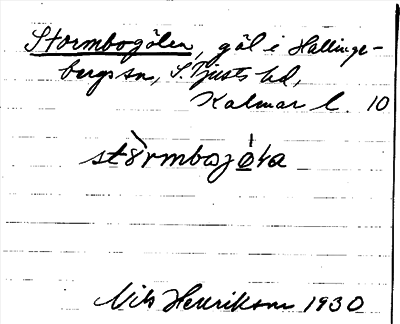 Stormbogölen, göl i Hallinge-
bergs sn, S. Tjusts hd,
Kalmar l. 10
stòrmbogǿla
Nils Henrikson 1930